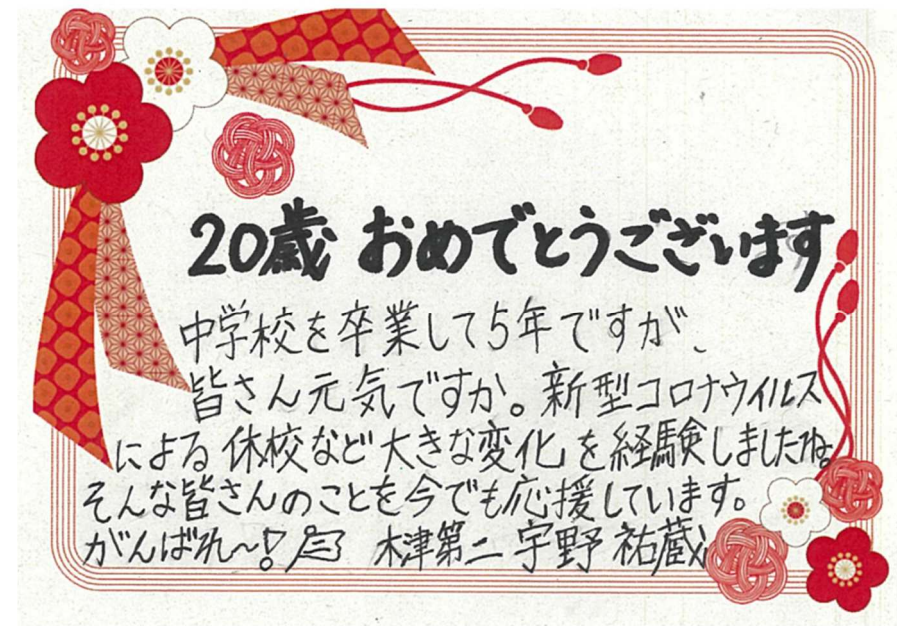 20歳 おめでとうございます
中学校を卒業して5年ですが、
皆さん元気ですか。新型コロナウイルス
による休校など大きな変化を経験しましたね。
そんな皆さんのことを今でも応援しています。
がんばれ〜! 木津第二 宇野 祐蔵